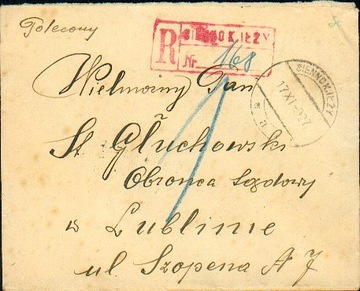 Polecony
R SIENNO K.IŁŻY
Nr. 168
SIENNO K.IŁŻY
17 XI 27
Wielmożny Pan
St Głuchowski
Obronca Sądowy
w Lublinie
ul Szopena № 7